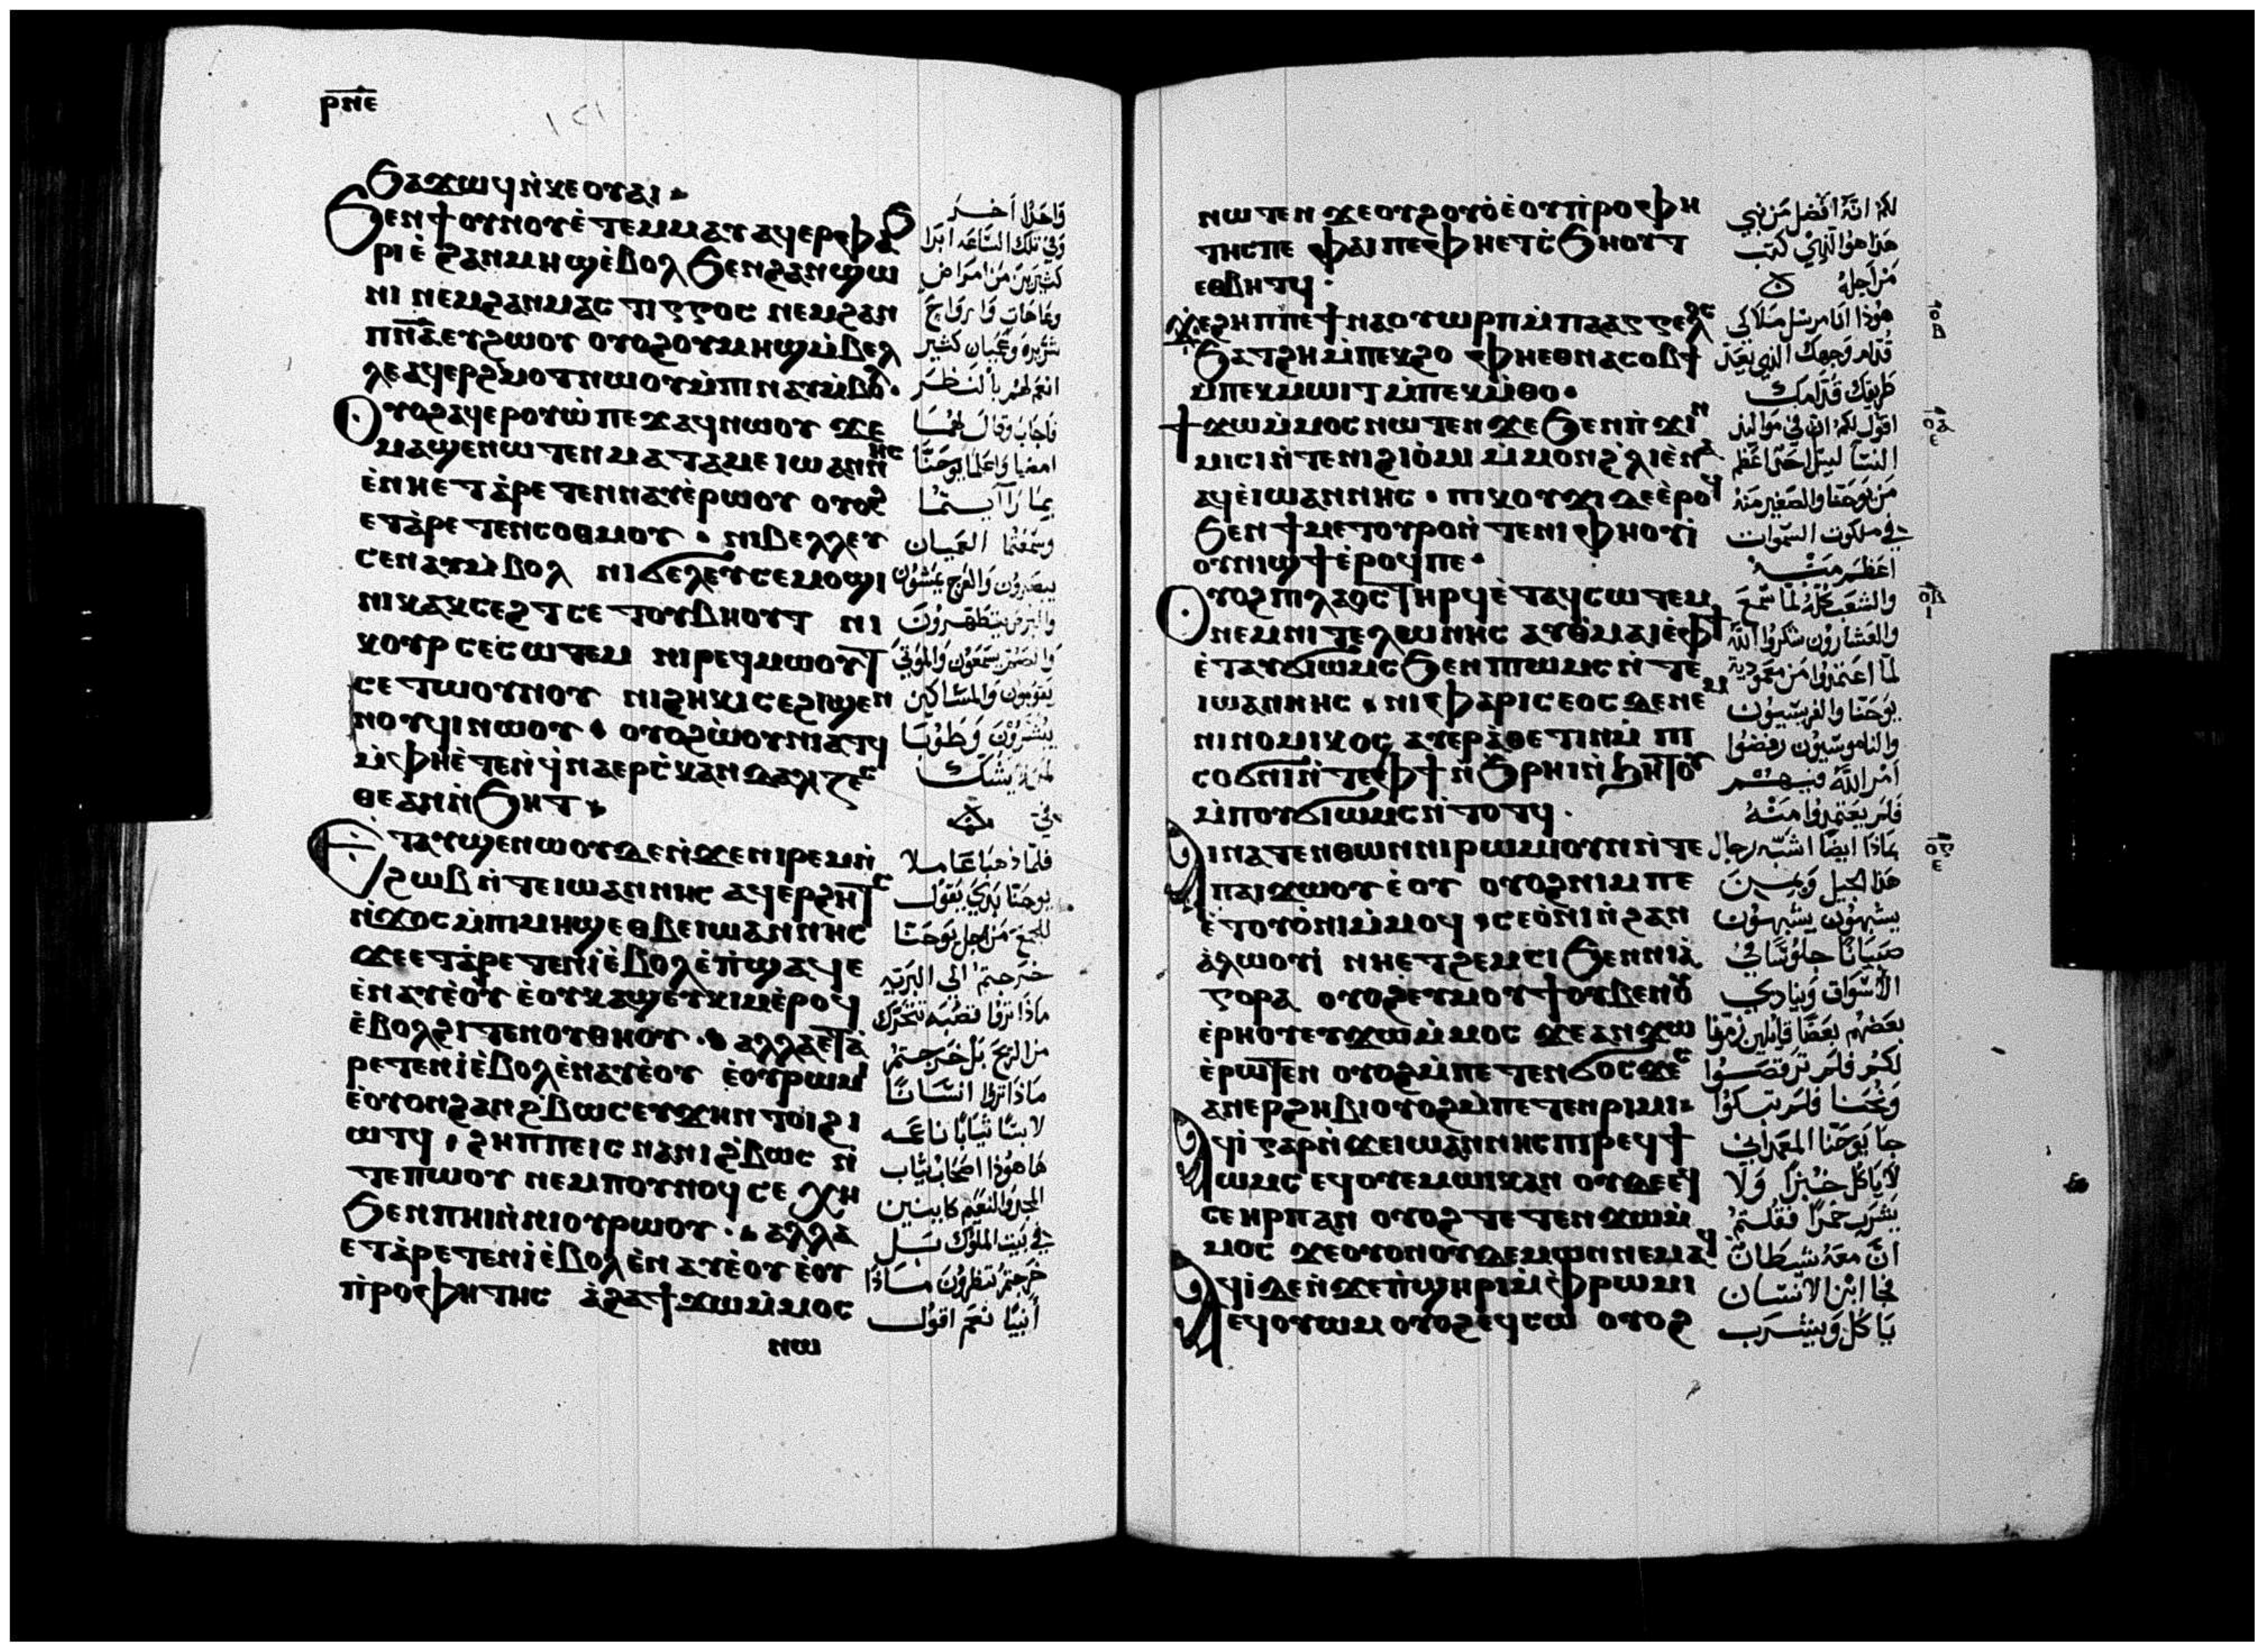 ⲣⲛⲉ
ϧⲁϫⲱϥ ⲛ̀ⲕⲉⲟⲩⲁⲓ
ϧⲉⲛ ϯⲟⲩⲛⲟⲩ ⲉ̀ⲧⲉⲙⲙⲁⲩ ⲁϥⲉⲣⲫⲁϧ
ⲣⲓ ⲉ̀ ϩⲁⲛⲙⲏϣ ⲉ̀ⲃⲟⲗ ϧⲉⲛ ϩⲁⲛϣⲱ
ⲛⲓ ⲛⲉⲙ ϩⲁⲛⲙⲁⲥⲧⲓⲅⲅⲟⲥ ⲛⲉⲙ ϩⲁⲛ
ⲡⲛ̅ⲁ̅ ⲉⲩϩⲱⲟⲩ ⲟⲩⲟϩ ⲟⲩⲙⲏϣ ⲙ̀ⲃⲉⲗ
ⲗⲉ ⲁϥⲉⲣϩⲙⲟⲧ ⲛⲱⲟⲩ ⲙ̀ⲡⲓⲛⲁⲩ ⲙ̀ⲃⲟⲗ
ⲟⲩⲟϩ ⲁϥⲉⲣⲟⲩⲱ̀ ⲡⲉϫⲁϥ ⲛⲱⲟⲩ ϫⲉ
ⲙⲁϣⲉⲛⲱⲧⲉⲛ ⲙⲁⲧⲁⲙⲉ ⲓⲱⲁⲛⲛⲏⲥ
ⲉ̀ⲛⲏⲉⲧⲁ̀ⲣⲉⲧⲉⲛⲛⲁⲩ ⲉ̀ⲣⲱⲟⲩ ⲟⲩⲟϩ
ⲉⲧⲁ̀ⲣⲉⲧⲉⲛⲥⲟⲑⲙⲟⲩ · ⲛⲓⲃⲉⲗⲗⲉⲩ
ⲥⲉⲛⲁⲩ ⲙ̀ⲃⲟⲗ ⲛⲓϭⲁⲗⲉⲩ ⲥⲉⲙⲟϣⲓ
ⲛⲓⲕⲁⲕⲥⲉϩⲧ ⲥⲉⲧⲟⲩⲃⲏⲟⲩⲧ ⲛⲓ
ⲕⲟⲩⲣ ⲥⲉⲥⲱⲧⲉⲙ ⲛⲓⲣⲉϥⲙⲱⲟⲩⲧ
ⲥⲉⲧⲱⲟⲩⲛⲟⲩ ⲛⲓϩⲏⲕⲓ ⲥⲉϩⲓϣⲉⲛ
ⲛⲟⲩϥⲓ ⲛⲱⲟⲩ · ⲟⲩⲟϩ ⲱ̀ⲟⲩⲛⲓⲁⲧϥ
ⲙ̀ⲫⲏⲉ̀ⲧⲉⲛ̀ϥⲛⲁⲉⲣⲥ̀ⲕⲁⲛⲇⲁⲗⲓⲍⲉⲥ
ⲑⲉ ⲁⲛ ⲛ̀ϧⲏⲧ
ⲉⲧⲁⲩϣⲉⲛⲱⲟⲩ ⲇⲉ ⲛ̀ϫⲉ ⲛⲓⲣⲉⲙⲛ̀
ϩⲱⲃ ⲛ̀ⲧⲉ ⲓⲱⲁⲛⲛⲏⲥ ⲁϥⲉⲣϩⲏⲧⲥ
ⲛ̀ϫⲟⲥ ⲙ̀ⲡⲓⲙⲏϣ ⲉⲑⲃⲉ ⲓⲱⲁⲛⲛⲏⲥ
ϫⲉ ⲉⲧⲁ̀ⲣⲉⲧⲉⲛⲓ̀ ⲉ̀ⲃⲟⲗ ⲉ̀ⲡ̀ϣⲁϥⲉ
ⲉ̀ⲛⲁⲩ ⲉ̀ⲟⲩ ⲉ̀ⲟⲩⲕⲁϣ ⲉⲩⲕⲓⲙ ⲉ̀ⲣⲟϥ
ⲉ̀ⲃⲟⲗ ϩⲓⲧⲉⲛ ⲟⲩⲑⲏⲟⲩ · ⲁⲗⲗⲁ ⲉⲧⲁ̀
ⲣⲉⲧⲉⲛⲓ̀ ⲉ̀ⲃⲟⲗ ⲉ̀ⲛⲁⲩ ⲉ̀ⲟⲩ ⲉ̀ⲟⲩⲣⲱⲙⲓ
ⲉ̀ⲟⲩⲟⲛ ϩⲁⲛϩ̀ⲃⲱⲥ ⲉⲩϫⲏⲛ ⲧⲟⲓ ϩⲓ
ⲱⲧϥ · ϩⲏⲡⲡⲉ ⲓⲥ ⲛⲁⲛⲓϩ̀ⲃⲱⲥ ⲛ̀
ⲧⲉ ⲡⲱⲟⲩ ⲛⲉⲙ ⲡⲟⲩⲛⲟϥ ⲥⲉ ⲭⲏ
ϧⲉⲛ ⲡⲏⲓ ⲛ̀ⲛⲓⲟⲩⲣⲱⲟⲩ · ⲁⲗⲗⲁ
ⲉⲧⲁ̀ⲣⲉⲧⲉⲛⲓ̀ ⲉ̀ⲃⲟⲗ ⲉ̀ⲛⲁⲩ ⲉ̀ⲟⲩ ⲉ̀ⲟⲩ
ⲡ̀ⲣⲟⲫⲏⲧⲏⲥ ⲁ̀ϩⲁ ϯϫⲱ ⲙ̀ⲙⲟⲥ
ⲛⲱ
واحدا اخر
وفي تلك الساعه ابرا
كثيرين من امراض
وعاهات وارواح
شريره وعميان كثير
انعم لهم بالنظر
فاجاب وقال لهما
امضيا واعلما يوحنا
بما رأيتما
وسمعتما العميان
يبصرون والعرج يمشون
والبرص يتطهرون
والصم يسمعون والموتي
يقومون والمساكين
يبشرون وطوبا
لمن لا يشك
في
فلما ذهبا عاملا
يوحنا بدي يقول
للجمع من اجل يوحنا
خرجتم الى البريه
ماذا تروا قصبه تتحرك
من الريح بل خرجتم
ماذا تروا انسانا
لابسا ثيابا ناعمه
ها هوذا اصحاب ثياب
المجد والنعيم كاينين
في بيت الملوك بل
خرجتم تنظرون ماذا
أنبيا نعم اقول
ⲛⲱⲧⲉⲛ ϫⲉ ⲟⲩϩⲟⲩⲟ̀ ⲉ̀ⲟⲩⲡ̀ⲣⲟⲫⲏ
ⲧⲏⲥ ⲡⲉ ⲫⲁⲓ ⲡⲉ ⲫⲏⲉⲧⲥ̀ϧⲏⲟⲩⲧ
ⲉⲑⲃⲏⲧϥ ·
ϫⲉ ϩⲏⲡⲡⲉ ϯⲛⲁⲟⲩⲱⲣⲡ ⲙ̀ⲡⲁⲁⲅⲅⲉⲗⲟⲥ
ϧⲁⲧϩⲏ ⲙ̀ⲡⲉⲕϩⲟ ⲫⲏⲉⲑⲛⲁⲥⲟⲃϯ
ⲙ̀ⲡⲉⲕⲙⲱⲓⲧ ⲙ̀ⲡⲉⲕⲙ̀ⲑⲟ ·
ϯϫⲱ ⲙ̀ⲙⲟⲥ ⲛⲱⲧⲉⲛ ϫⲉ ϧⲉⲛ ⲡ̀ϫⲓⲛ
ⲙⲓⲥⲓ ⲛ̀ⲧⲉ ⲛⲓϩⲓⲟ̀ⲙⲓ ⲙ̀ⲙⲟⲛ ϩ̀ⲗⲓ ⲉ̀ⲛⲁ
ⲁϥ ⲉ̀ⲓⲱⲁⲛⲛⲏⲥ · ⲡⲓⲕⲟⲩϫⲓ ⲇⲉ ⲉ̀ⲣⲟϥ
ϧⲉⲛ ϯⲙⲉⲧⲟⲩⲣⲟ ⲛ̀ⲧⲉ ⲛⲓⲫⲏⲟⲩⲓ̀
ⲟⲩⲛⲓϣϯ ⲉ̀ⲣⲟϥ ⲡⲉ ·
ⲟⲩⲟϩ ⲡⲓⲗⲁⲟⲥ ⲧⲏⲣϥ ⲉ̀ⲧⲁϥⲥⲱⲧⲉⲙ
ⲛⲉⲙ ⲛⲓⲧⲉⲗⲱⲛⲏⲥ ⲁⲩⲑⲙⲁⲓⲉ̀ ⲫϯ
ⲉ̀ⲧⲁⲩϭⲓⲱⲙⲥ ϧⲉⲛ ⲡⲓⲱⲙⲥ ⲛ̀ⲧⲉ
ⲓⲱⲁⲛⲛⲏⲥ · ⲛⲓⲫⲁⲣⲓⲥⲉⲟⲥ ⲇⲉ ⲛⲉⲙ
ⲛⲓⲛⲟⲙⲓⲕⲟⲥ ⲁⲩⲉⲣⲁ̀ⲑⲉⲧⲓⲛ ⲙ̀ⲡⲓ
ⲥⲟϭⲛⲓ ⲛ̀ⲧⲉ ⲫϯ ⲛ̀ϧ̀ⲣⲏⲓ ⲛ̀ϧⲏⲧⲟⲩ
ⲙ̀ⲡⲟⲩϭⲓⲱⲙⲥ ⲛ̀ⲧⲟⲧϥ ·
ⲁⲓⲛⲁⲧⲉⲛⲑⲱⲛ ⲛⲓⲣⲱⲙⲓ ⲟⲩⲛ ⲛ̀ⲧⲉ
ⲡⲁⲓϫⲱⲟⲩ ⲉ̀ⲟⲩ ⲟⲩⲟϩ ⲛⲓⲙ ⲡⲉ
ⲉ̀ⲧⲟⲩⲟ̀ⲛⲓ ⲙ̀ⲙⲟϥ · ⲥⲉⲟ̀ⲛⲓ ⲛ̀ϩⲁⲛ
ⲁ̀ⲗⲱⲟⲩⲓ̀ ⲛⲏⲉⲧϩⲉⲙⲥⲓ ϧⲉⲛ ⲛⲓⲁ̀
ⲅⲟⲣⲁ ⲟⲩⲟϩ ⲉⲩⲙⲟⲩϯ ⲟⲩⲃⲉ ⲛⲟⲩ
ⲉ̀ⲣⲏⲟⲩ ⲉⲩϫⲱ ⲙ̀ⲙⲟⲥ ϫⲉ ⲁⲛϫⲱ
ⲉ̀ⲣⲱⲧⲉⲛ ⲟⲩⲟϩ ⲙ̀ⲡⲉⲧⲉⲛϭⲟⲥϫⲉⲥ
ⲁⲛⲉⲣϩⲏⲃⲓ ⲟⲩⲟϩ ⲙ̀ⲡⲉⲧⲉⲛⲣⲓⲙⲓ
ⲁϥⲓ̀ ⲅⲁⲣ ⲛ̀ϫⲉ ⲓⲱⲁⲛⲛⲏⲥ ⲡⲓⲣⲉϥϯ
ⲱⲙⲥ ⲉϥⲟⲩⲉⲙⲱⲓⲕ ⲁⲛ ⲟⲩⲇⲉ ⲉϥ
ⲥⲉ ⲏⲣⲡ ⲁⲛ ⲟⲩⲟϩ ⲧⲉⲧⲉⲛϫⲱ ⲙ̀
ⲙⲟⲥ ϫⲉ ⲟⲩⲟⲛ ⲟⲩⲇⲉⲙⲱⲛ ⲛⲉⲙⲁϥ
ⲁϥⲓ̀ ⲇⲉ ⲛ̀ϫⲉ ⲡ̀ϣⲏⲣⲓ ⲙ̀ⲫ̀ⲣⲱⲙⲓ
ⲉϥⲟⲩⲱⲙ ⲟⲩⲟϩ ⲉϥⲥⲱ ⲟⲩⲟϩ
لكم انه افضل من نبي
هذا هو الذي كتب
من اجله
هوذا انا مرسل ملاكي
قدام وجهك الذي يعد
طريقك قدامك
اقول لكم ان في مواليد
النسا ليس احد اعظم
من يوحنا والصغير منه
في ملكوت السموات
اعظم منه
والشعب كله لما سمع
والعشارون شكروا الله
لما اعتمدوا من معمودية
يوحنا والفريسيون
والناموسيون رفضوا
امر الله فيهم
فلم يعتمدوا منه
بماذا ايضا اشبه رجال
هذا الجيل وبمن
يشبهون يشبهون
صبيانا جلوسا في
الأسواق وينادي
بعضهم بعضا قايلين زمرنا
لكم فلم ترقصوا
ونحنا فلم تبكوا
جا يوحنا المعمداني
لا ياكل خبزا ولا
يشرب خمرا فقلتم
ان معه شيطان
جا ابن الانسان
ياكل ويشرب